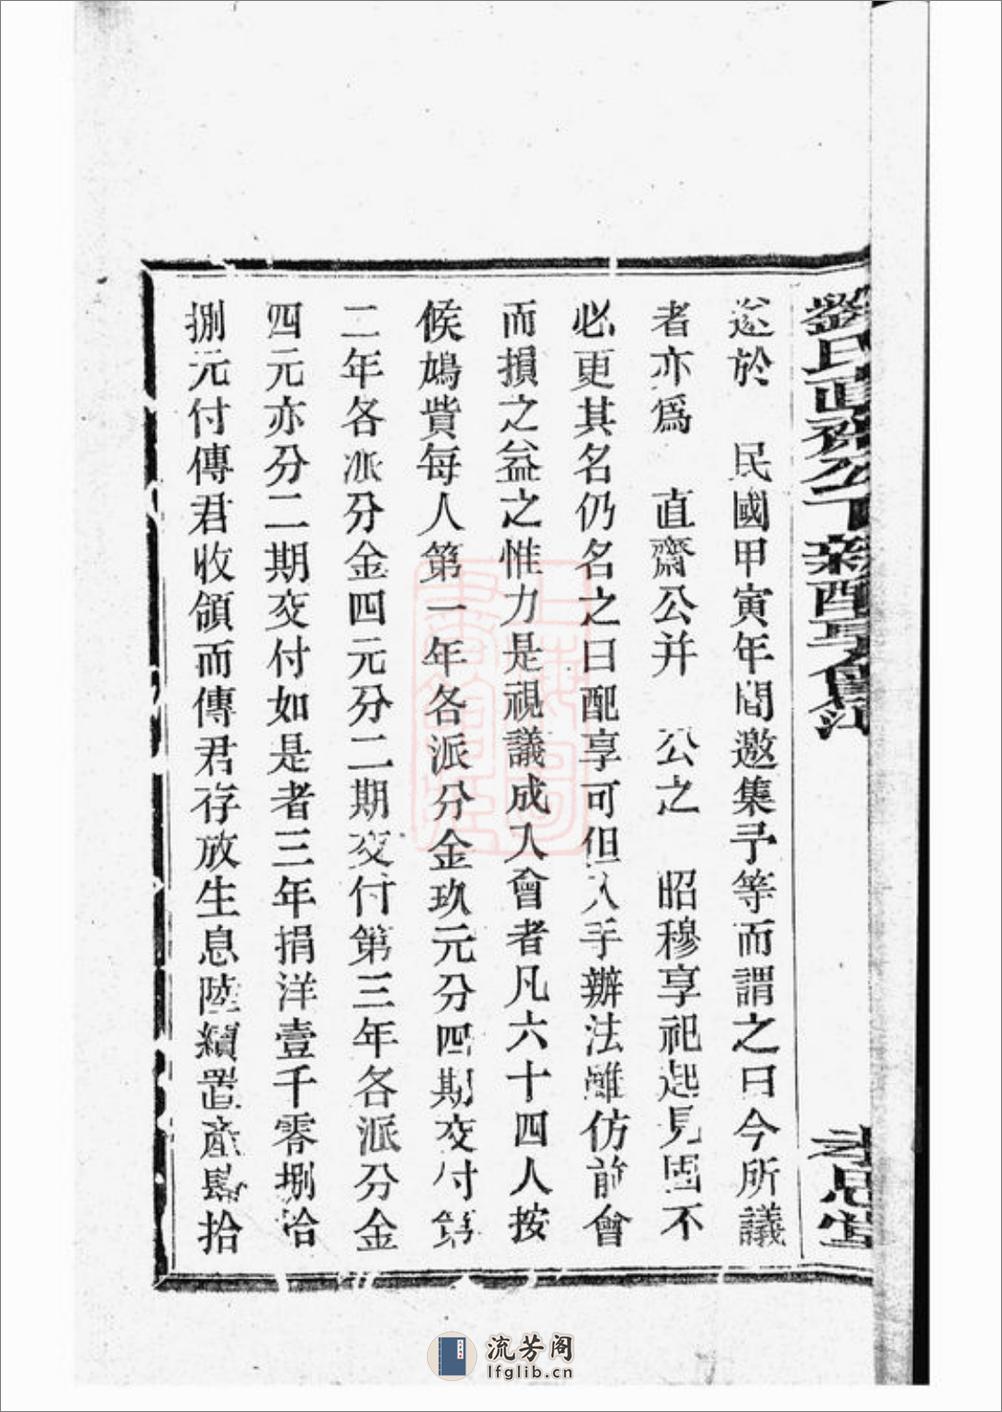 劉氏直齋公下新配享會
孝思堂
遂於　民國甲寅年間邀集予等而謂之曰今所議
者亦爲　直齋公并　公之　昭穆享祀起見固不
必更其名仍名之曰配享可但入手辦法雖仿前會
而損之益之惟力是視議成入會者凡六十四人按
候鳩貲每人第一年各派分金玖元分四期交付第
二年各派分金四元分二期交付第三年各派分金
四元亦分二期交付如是者三年捐洋壹千零捌拾
捌元付傳君收領而傳君存放生息陸續置產
拾
流芳阁
lfglib.cn